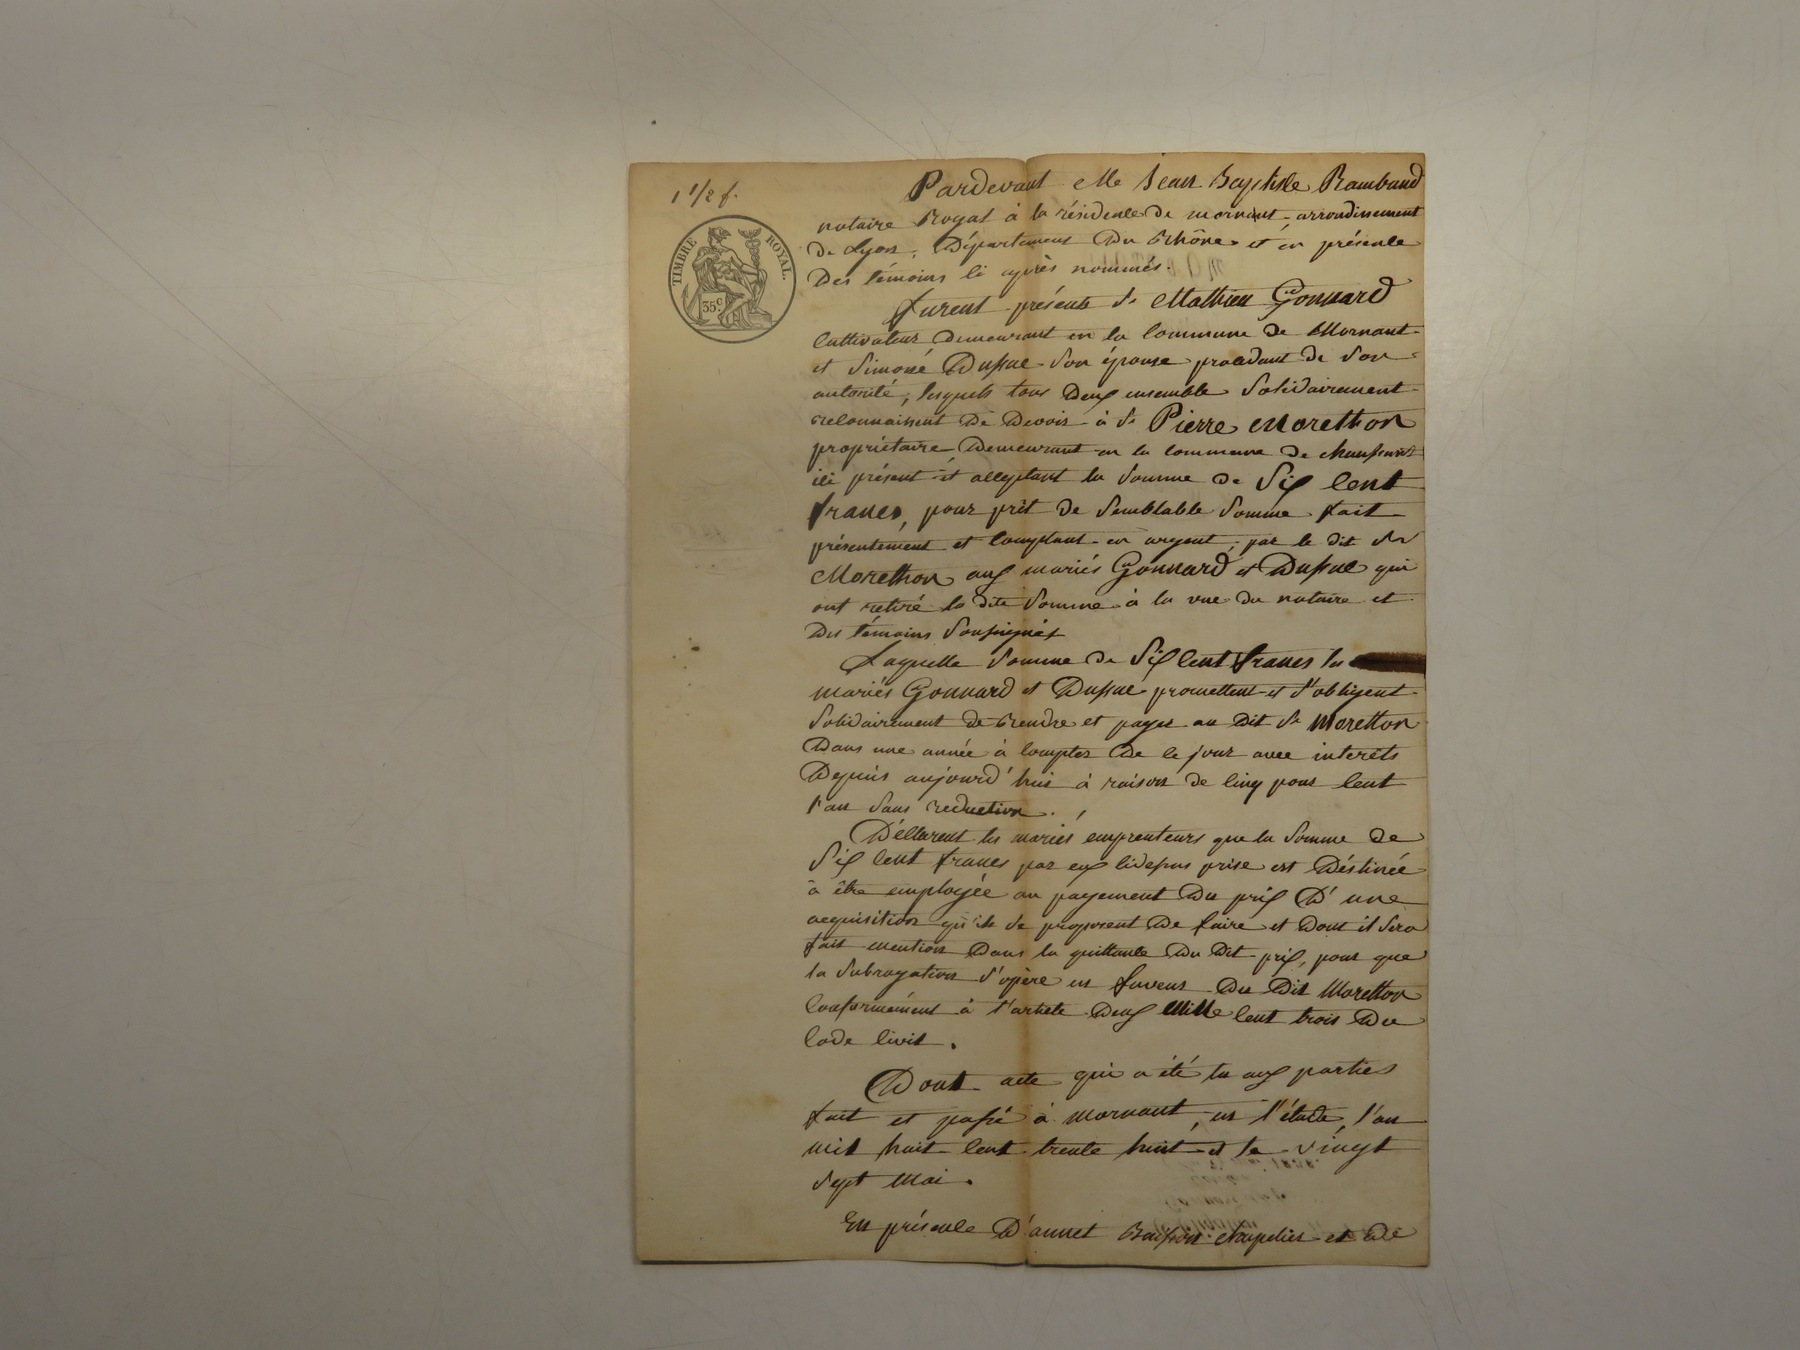 1 1/2 f.
TIMBRE ROYAL
35 c.
Pardevant Me Jean Baptiste Rambaud
notaire Royal à la résidence de mornant arrondissement
de Lyon, Département du Rhône et en présence
Des témoins ci après nommés.
furent présents Sr Mathieu Gonnard
Cultivateur Demeurant en la commune de Mornant
et Simone Dussuc son épouse procédant de son
autorité, lesquels tous deux ensemble solidairement
reconnaissent De Devoir à Sr Pierre Morethon
propriétaire Demeurant en la commune de chaussant
ici présent et acceptant la somme de Six cent
francs, pour prêt de semblable somme fait
présentement et comptant en argent, par le dit Sr
Morethon aux mariés Gonnard et Dussuc qui
ont retiré la dite somme à la vue du notaire et
Des témoins soussignés
Laquelle somme de Six cent francs les
mariés Gonnard et Dussuc promettent et s'obligent
solidairement de rendre et payer au Dit Sr Moretton
Dans une année à compter de ce jour avec interêts
Depuis aujourd'huis à raison de cinq pour cent
l'an sans reduction.
Déclarent les mariés emprenteurs que la somme de
Six cent francs par eux cidessus prise est Déstinée
à être employée au payement du prix D'une
acquisition qu'ils se proposent de faire et dont il sera
fait mention Dans la quittance Du Dit prix, pour que
la subrogation s'opère en faveur Du Dit Moretton
Conformément à l'article Deux Mille cent trois Du
Code Civil.
Dont acte qui a été lu aux parties
fait et passé à mornant, en l'étude, l'an
mil huit cent trente huit et le vingt
sept Mai.
En présence D'annet Buisson chapelier et De